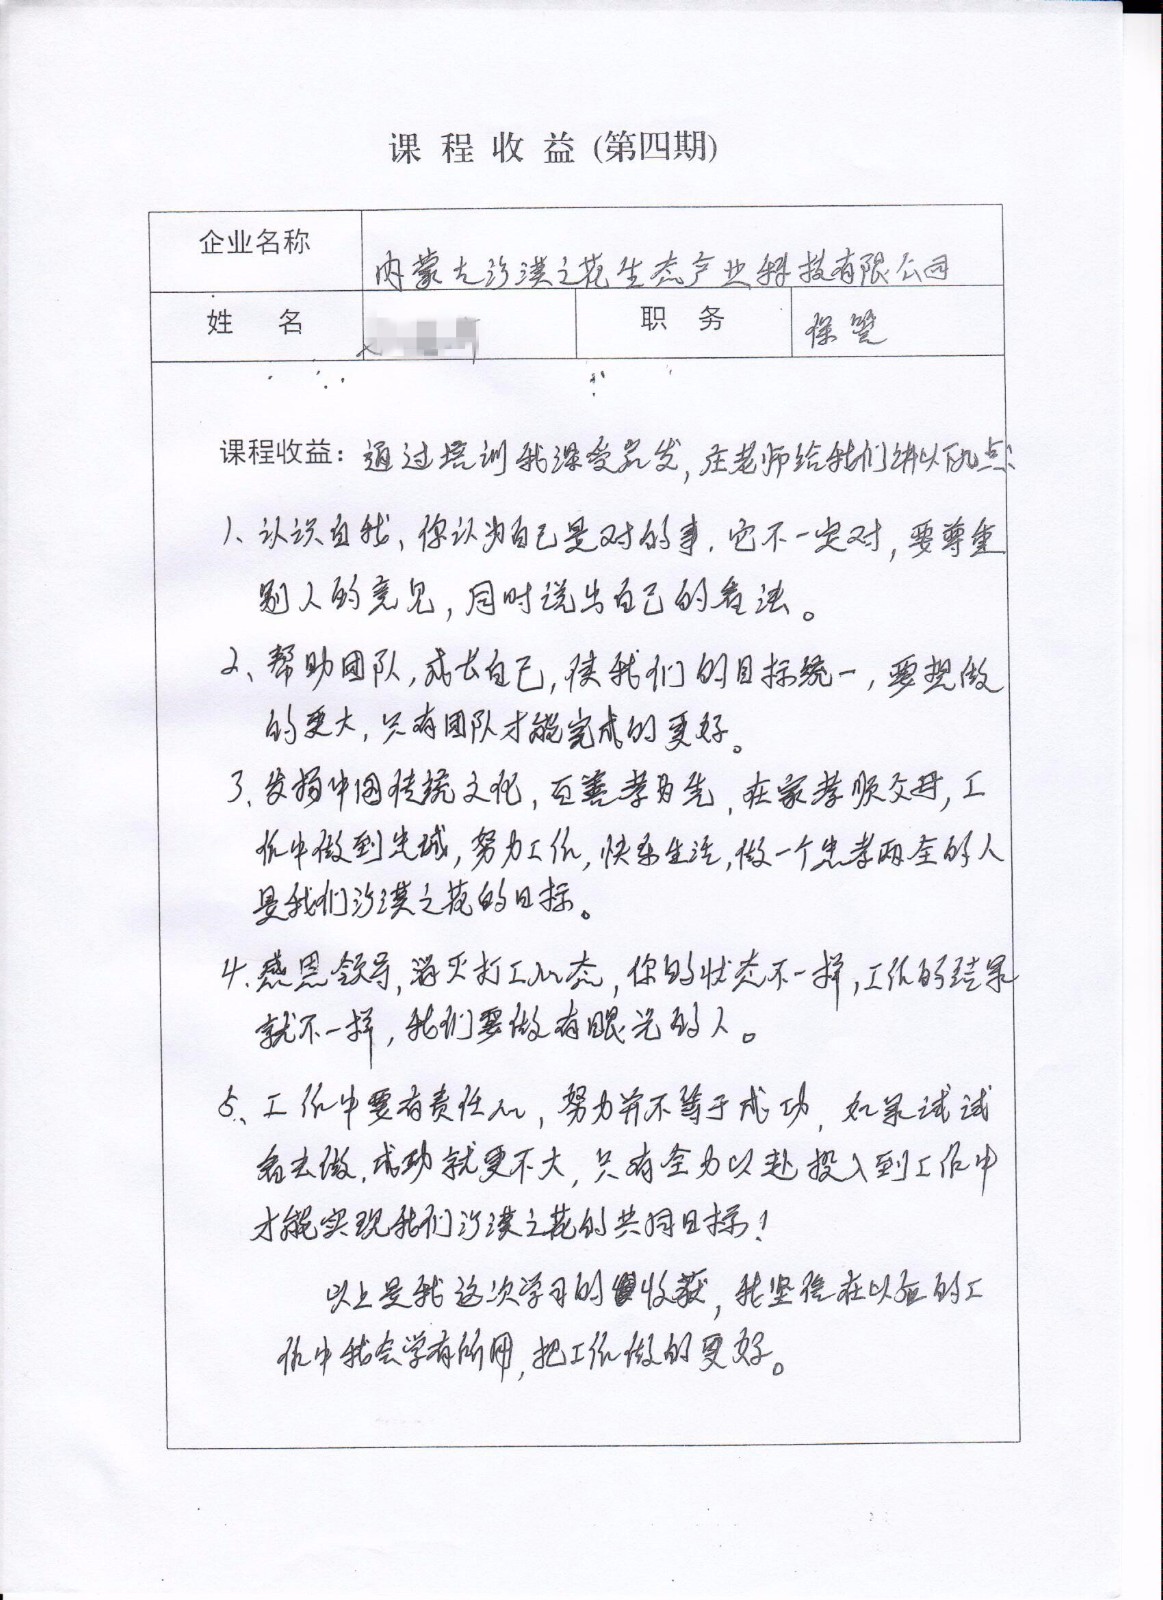 课程收益(第四期)
企业名称 内蒙古沙漠之花生态产业科技有限公司
姓 名 职 务 保管
课程收益：通过培训我深受启发，庄老师给我们讲以下几点：
1、认识自我、你认为自己是对的事．它不一定对，要尊重
别人的意见，同时说出自己的看法。
2、帮助团队，成长自己，使我们的目标统一，要想做
的更大，只有团队才能完成的更好。
3、发扬中国传统文化，百善孝为先，在家孝顺父母，工
作中做到忠诚，努力工作，快乐生活，做一个忠孝两全的人
是我们沙漠之花的目标。
4.感恩领导，消灭打工心态，你的状态不一样，工作的结果
就不一样，我们要做有眼光的人。
5、工作中要有责任心，努力并不等于成功，如果试试
看去做．成功就更不大，只有全力以赴投入到工作中
才能实现我们沙漠之花的共同目标！
以上是我这次学习的收获，我坚信在以后的工
作中我会学有所用，把工作做的更好。